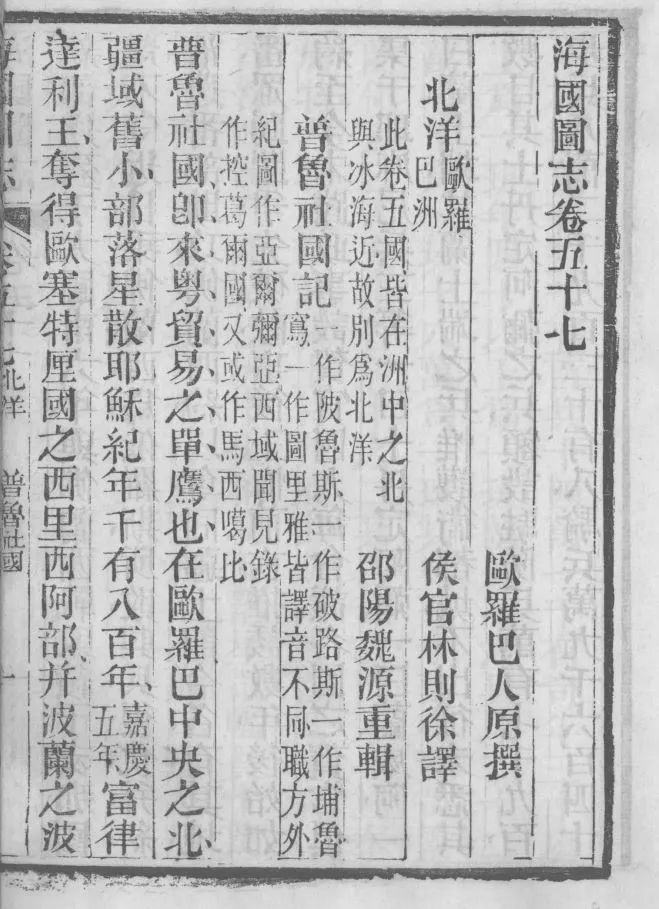 海國圖志卷五十七
歐羅巴人原撰
北洋歐羅巴洲
侯官林則徐譯
此卷五國皆在洲中之北
與冰海近故別爲北洋
邵陽魏源重輯
普魯社國記一作陂魯斯一作破路斯一作埔魯
寫一作圖里雅皆譯音不同職方外
紀圖作亞爾彌亞西域聞見錄
作控葛爾國又或作馬西噶比
普魯社國卽來粤貿易之單鷹也在歐羅巴中央之北
疆域舊小部落星散耶穌紀年千有八百年嘉慶五年富律
達利王奪得歐塞特厘國之西里西阿部并波蘭之波
北洋
普魯社國
一